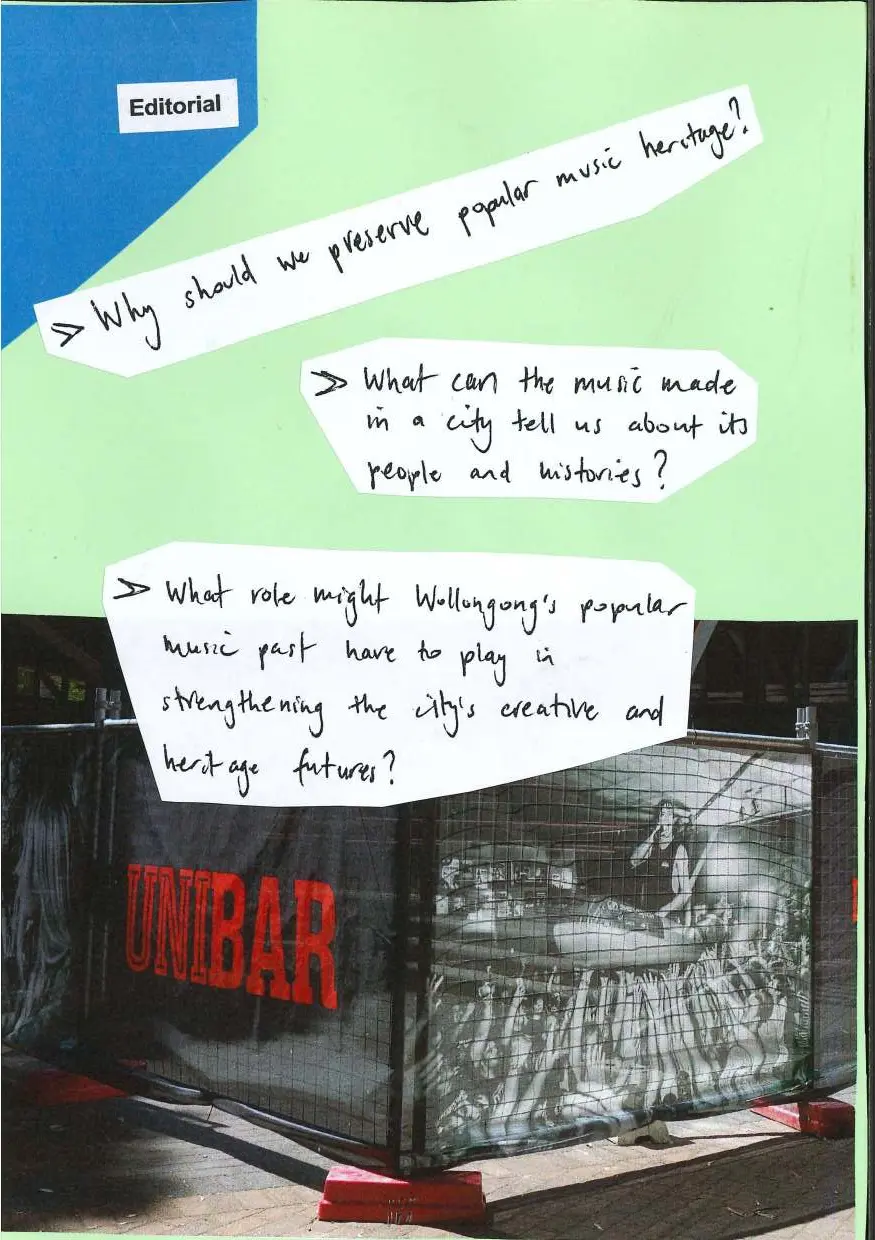 Editorial
> Why should we preserve popular music heritage?
> What can the music made
in a city tell us about its
people and histories?
> What role might Wollongong's popular
music past have to play in
strengthening the city's creative and
heritage futures?
UNIBAR